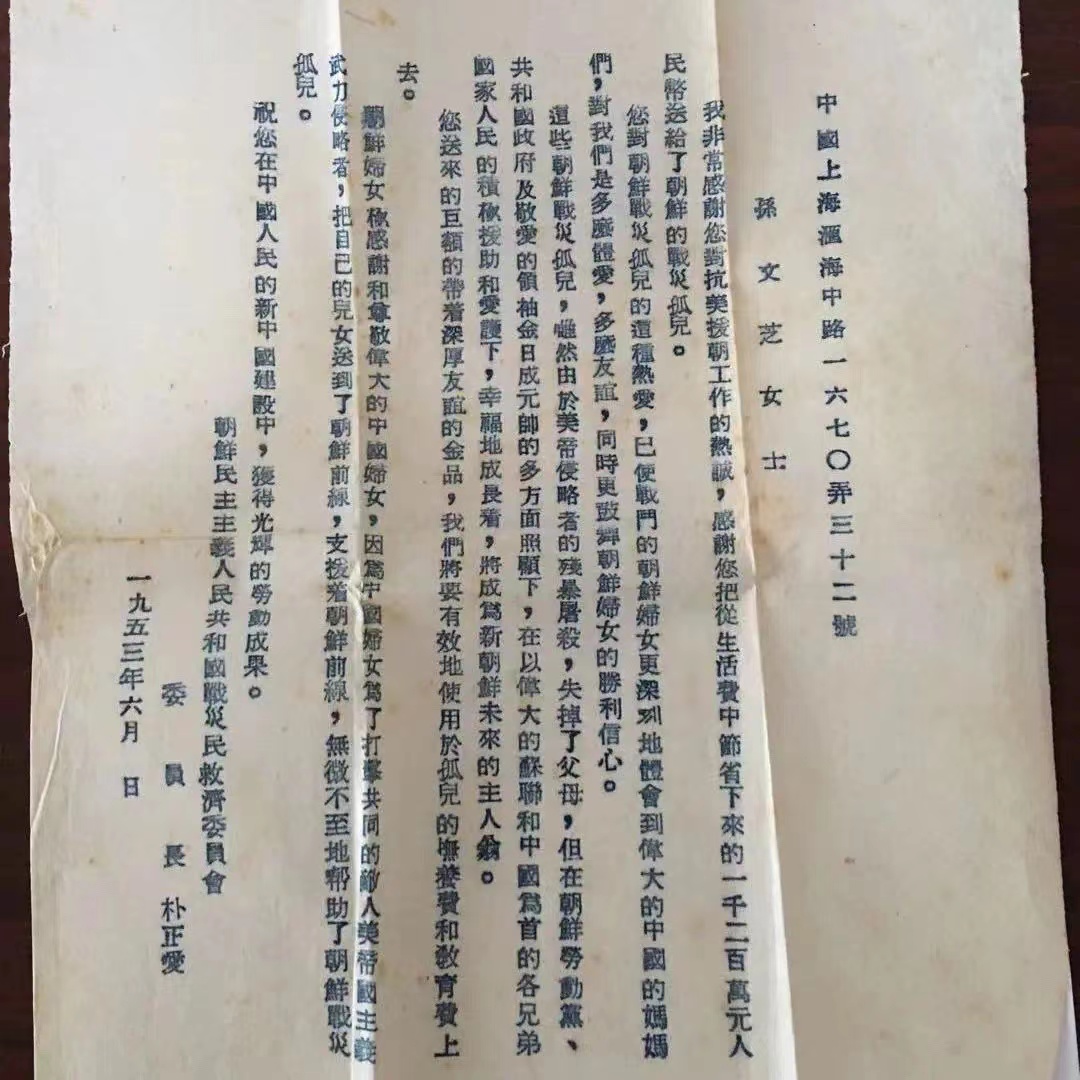 中國上海滙海中路一六七〇弄三十二號
孫文芝女士
我非常感謝您對抗美援朝工作的熱誠，感謝您把從生活費中節省下來的一千二百萬元人
民幣送給了朝鮮的戰災孤兒。
您對朝鮮戰災孤兒的這種熱愛，已使戰鬥的朝鮮婦女更深刻地體會到偉大的中國的媽媽
們，對我們是多麼體愛，多麼友誼，同時更鼓舞朝鮮婦女的勝利信心。
這些朝鮮戰災孤兒，雖然由於美帝侵略者的殘暴屠殺，失掉了父母，但在朝鮮勞動黨、
共和國政府及敬愛的領袖金日成元帥的多方面照顧下，在以偉大的蘇聯和中國爲首的各兄弟
國家人民的積極援助和愛護下，幸福地成長着，將成爲新朝鮮未來的主人翁。
您送來的巨額的帶着深厚友誼的金品，我們將要有效地使用於孤兒的撫養費和教育費上
去。
朝鮮婦女極感謝和尊敬偉大的中國婦女，因爲中國婦女爲了打擊共同的敵人美帝國主義
武力侵略者，把自己的兒女送到了朝鮮前線，支援着朝鮮前線，無微不至地幫助了朝鮮戰災
孤兒。
祝您在中國人民的新中國建設中，獲得光輝的勞動成果。
朝鮮民主主義人民共和國戰災民救濟委員會
委員長 朴正愛
一九五三年六月 日